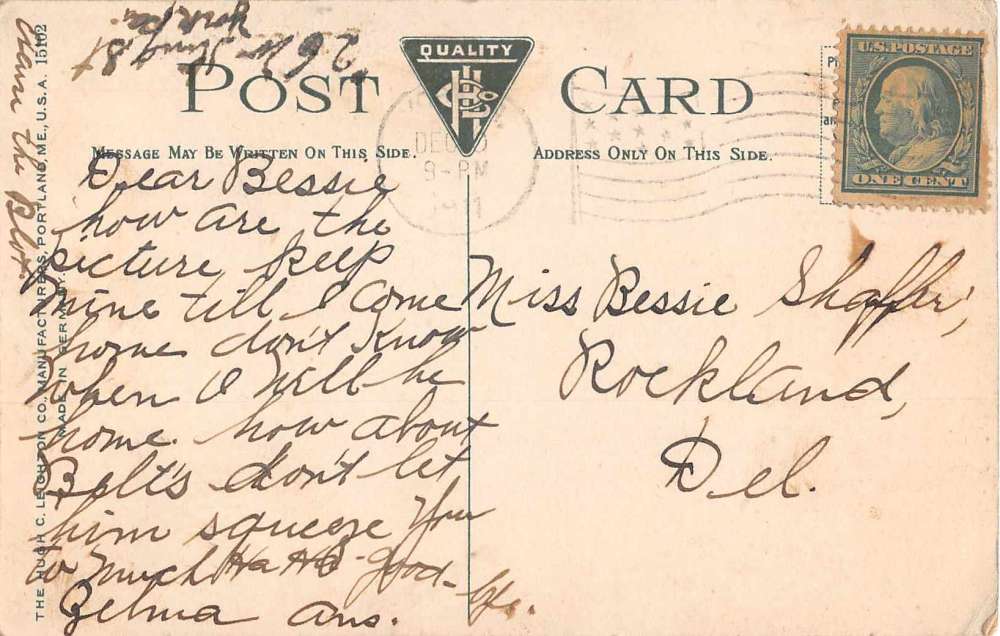 26 W King St
York Pa.
POST CARD
QUALITY
MESSAGE MAY BE WRITTEN ON THIS SIDE.
ADDRESS ONLY ON THIS SIDE.
U.S. POSTAGE
ONE CENT
DEC
8-PM
THE HUGH C. LEIGHTON CO., MANUFACTURERS, PORTLAND, ME., U.S.A. 15102
MADE IN GERMANY.
Dear Bessie
how are the
picture keep
mine till I come
home don't know
when I will be
home. how about
Belt's don't let
him squeeze you
to much Ha Ha good-bye.
Zelma Ans.
Miss Bessie Shaffer,
Rockland,
Del.